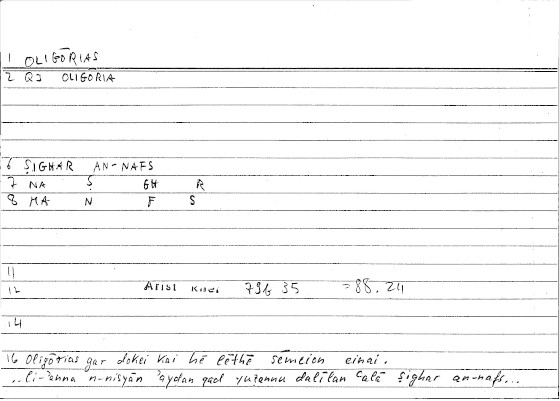 1 OLIGŌRIAS
2 QJ OLIGŌRIA
6 ṢIGHAR AN-NAFS
7 NA Ṣ GH R
8 MA N F S
11
12 Arist Rhet 79b 35 =88.24
14
16 Oligōrias gar dokei kai hē lēthē sēmeion einai.
..li-ʾanna n-nisyān ʾayḍan qad yuẓannu dalīlan ʿalā ṣighar an-nafs...